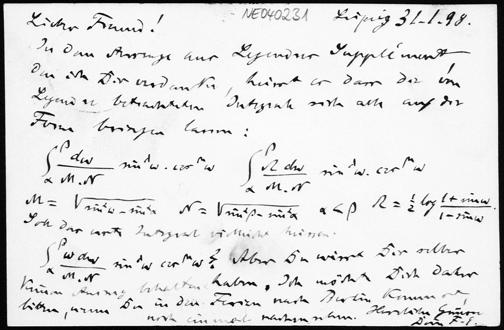 NE040231
Lieber Freund! Leipzig 31.1.98.
In dem Auszuge aus Legendres Supplément
den ich Dir verdanke, heisst es dass der von
Legendre betrachteten Integrale sich alle auf die
Form bringen lassen:
∫_α^β dω/(M.N) sin^λ ω . cos^μ ω ∫_α^β R dω/(M.N) sin^λ ω . cos^μ ω
M = √(sin²ω − sin²α) N = √(sin²β − sin²ω) α < β R = ½ log (1 + sin ω)/(1 − sin ω)
Soll das erste Integral vielleicht heissen:
∫_α^β ω dω/(M.N) sin^λ ω cos^μ ω? Aber Du wirst Dir selber
keinen Auszug behalten haben. Ich möchte Dich daher
bitten, wenn Du in den Ferien nach Berlin kommst,
noch einmal nachzusehen. Herzliche Grüsse
Dein F. E.